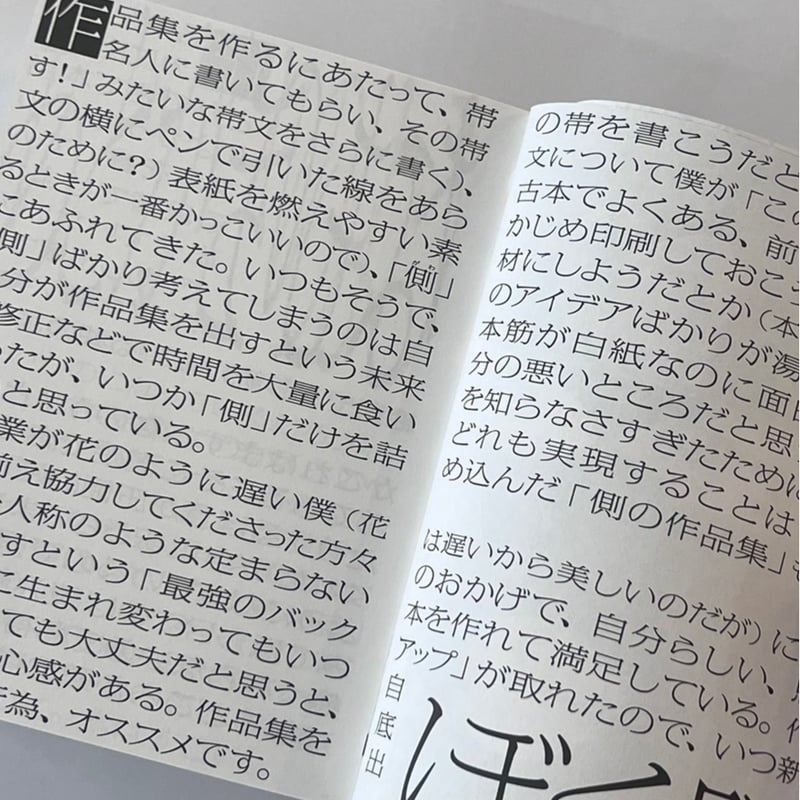 作品集を作るにあたって、帯の帯を書こうだと
名人に書いてもらい、その帯文について僕が「この
す!」みたいな帯文をさらに書く)、古本でよくある、前
文の横にペンで引いた線をあらかじめ印刷しておこう
のために?)表紙を燃えやすい素材にしようだとか(本
るときが一番かっこいいので)、「側」のアイデアばかりが湯
にあふれてきた。いつもそうで、本筋が白紙なのに面白
側」ばかり考えてしまうのは自分の悪いところだと思
分が作品集を出すという未来を知らなさすぎたために
修正などで時間を大量に食いどれも実現することは
ったが、いつか「側」だけを詰め込んだ「側の作品集」
と思っている。
業が花のように遅い僕(花は遅いから美しいのだが)に
え協力してくださった方々のおかげで、自分らしい、
人称のような定まらない本を作れて満足している。
すという「最強のバックアップ」が取れたので、いつ新
に生まれ変わってもいつ自
ても大丈夫だと思うと、底
心感がある。作品集を出
為、オススメです。
ぼく